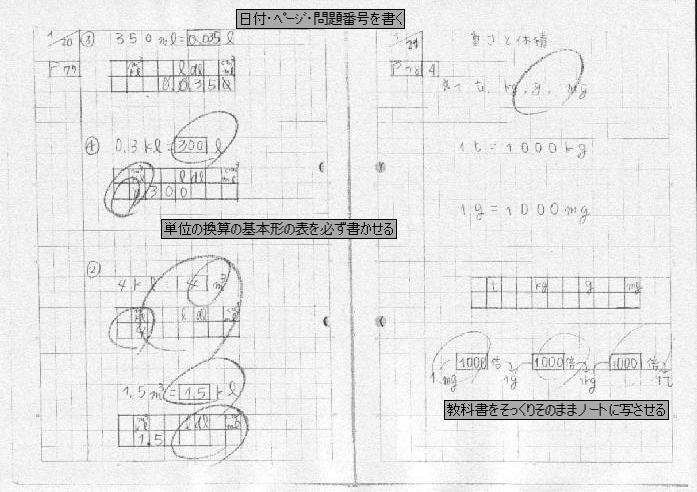 日付・ページ・問題番号を書く
1/20 ③ 350ml=0.035l
P77
m³ kl l dl cm³ ml
0.035
④ 0.3kl=300l
m³ kl l dl cm³ ml
300
単位の換算の基本形の表を必ず書かせる
②
4kl 4m³
kl l dl cm³ ml
4
1.5m³=1.5kl
l dl
1.5
1/21 重さと体積
P78 4
t, kg, g, mg
1t=1000kg
1g=1000mg
t kg g mg
1000倍 1000倍 1000倍
1mg 1g 1kg 1t
教科書をそっくりそのままノートに写させる